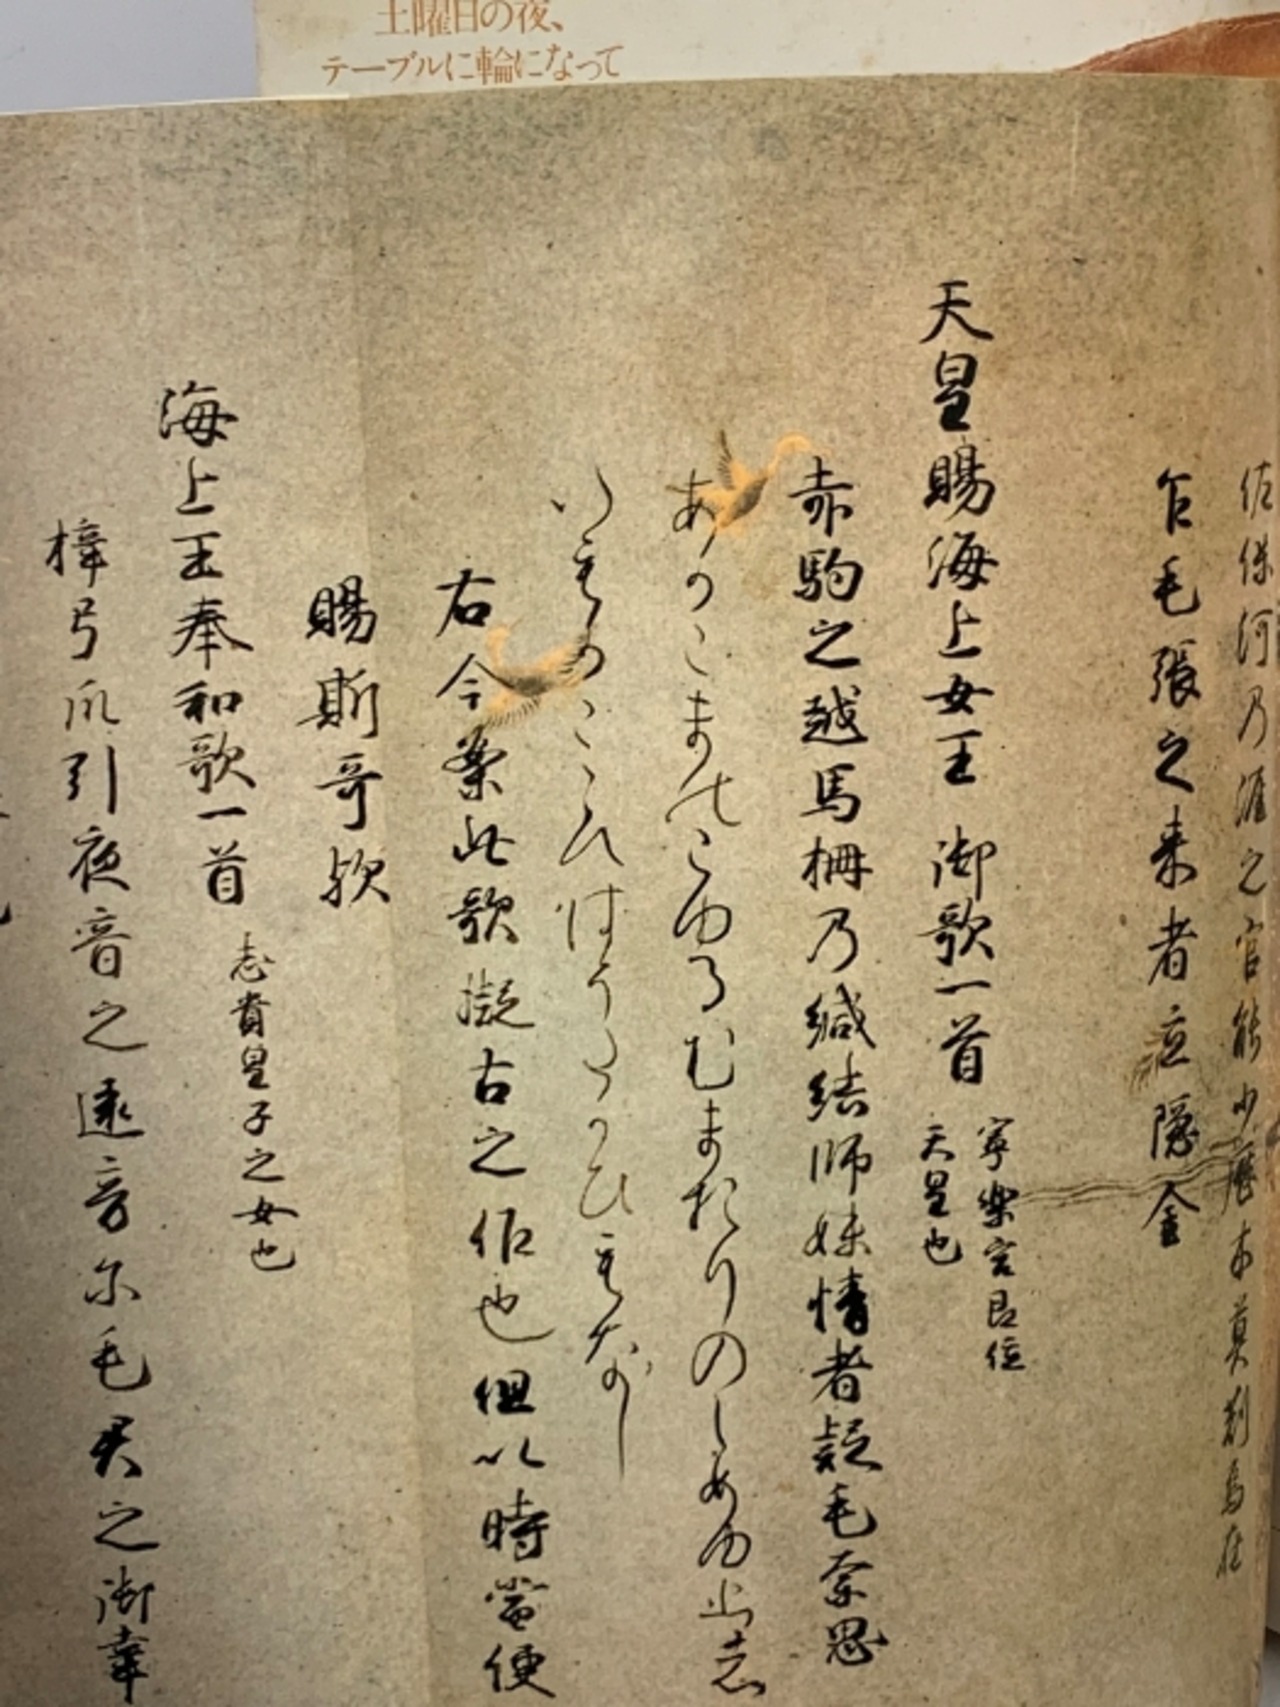 土曜日の夜、
テーブルに輪になって
佐保河乃涯之官能少歴木莫刈焉在
乍毛張之来者立隠金
天皇賜海上女王御歌一首
寧楽宮即位
天皇也
赤駒之越馬柵乃緘結師妹情者疑毛奈思
あかこまのこゆるむまおりのしめゆひし
いもかこゝろはうたかひもなし
右今案此歌擬古之作也但以時当便
賜斯哥歟
海上王奉和歌一首
志貴皇子之女也
梓弓爪引夜音之遠音尓毛君之御幸